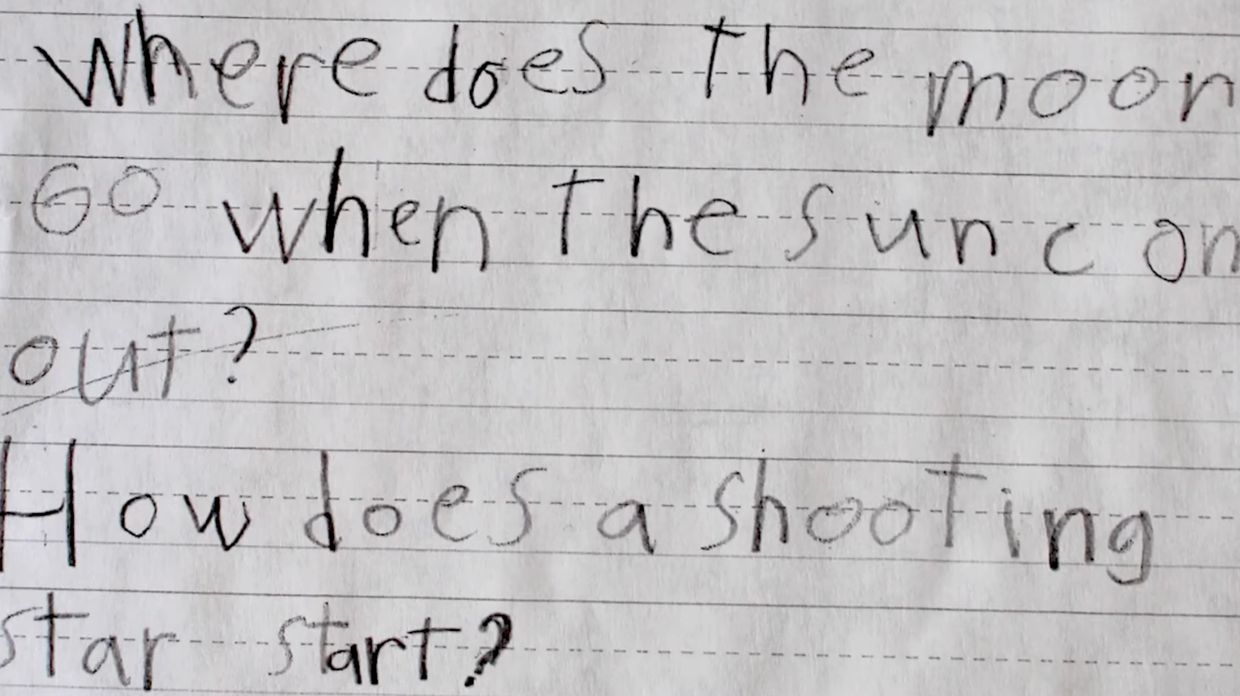 Where does the moon
GO when The sun com
out?
How does a shooting
star start?